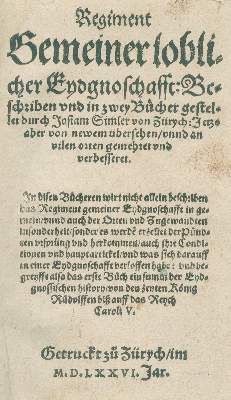 Regiment
Gemeiner lobli-
cher Eydgnoschafft: Be-
schriben vnd in zwey Bücher gestel-
let durch Josiam Simler von Zürych: Jetz
aber von newem übersehen / vnnd an
vilen orten gemehret vnd
verbesseret.
In disen Bücheren wirt nicht allein beschriben
das Regiment gemeiner Eydgnoschafft in ge-
mein / vnd auch der Orten vnd Zugewandten
in sonderheit / sonder es werdē erzellet der Pün-
ten vrsprung vnd herkommen / auch jhre Condi-
tionen vnd hauptartickel / vnd was sich darauff
in einer Eydgnoschafft verloffen habe: vnd be-
greyfft also das erste Büch ein summ der Eyd-
gnossischen history / von des zeyten König
Rüdolffen biß auff das Reych
Caroli V.
Getruckt zů Zürych / im
M.D.LXXVI. Jar.